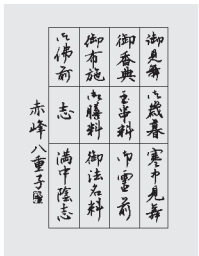 御見舞
御歳暮
寒中見舞
御香典
玉串料
御霊前
御布施
御膳料
御法名料
御佛前
志
満中陰志
赤峰八重子